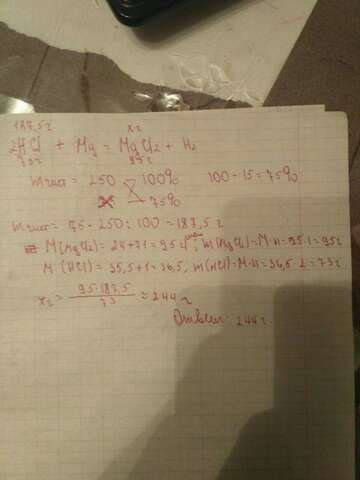 187,5г xг
2HCl + Mg = MgCl2 + H2
73г 95г
250 100% 100 - 15 = 75%
75%
75 · 250 : 100 = 187,5 г
M(MgCl2) = 24+71 = 95 г/моль; m(MgCl2) = M·n = 95·1 = 95г
M(HCl) = 35,5+1 = 36,5, m(HCl) = M·n = 36,5·2 = 73г
xг = 95·187,5 / 73 = 244 г
Ответ: 244г